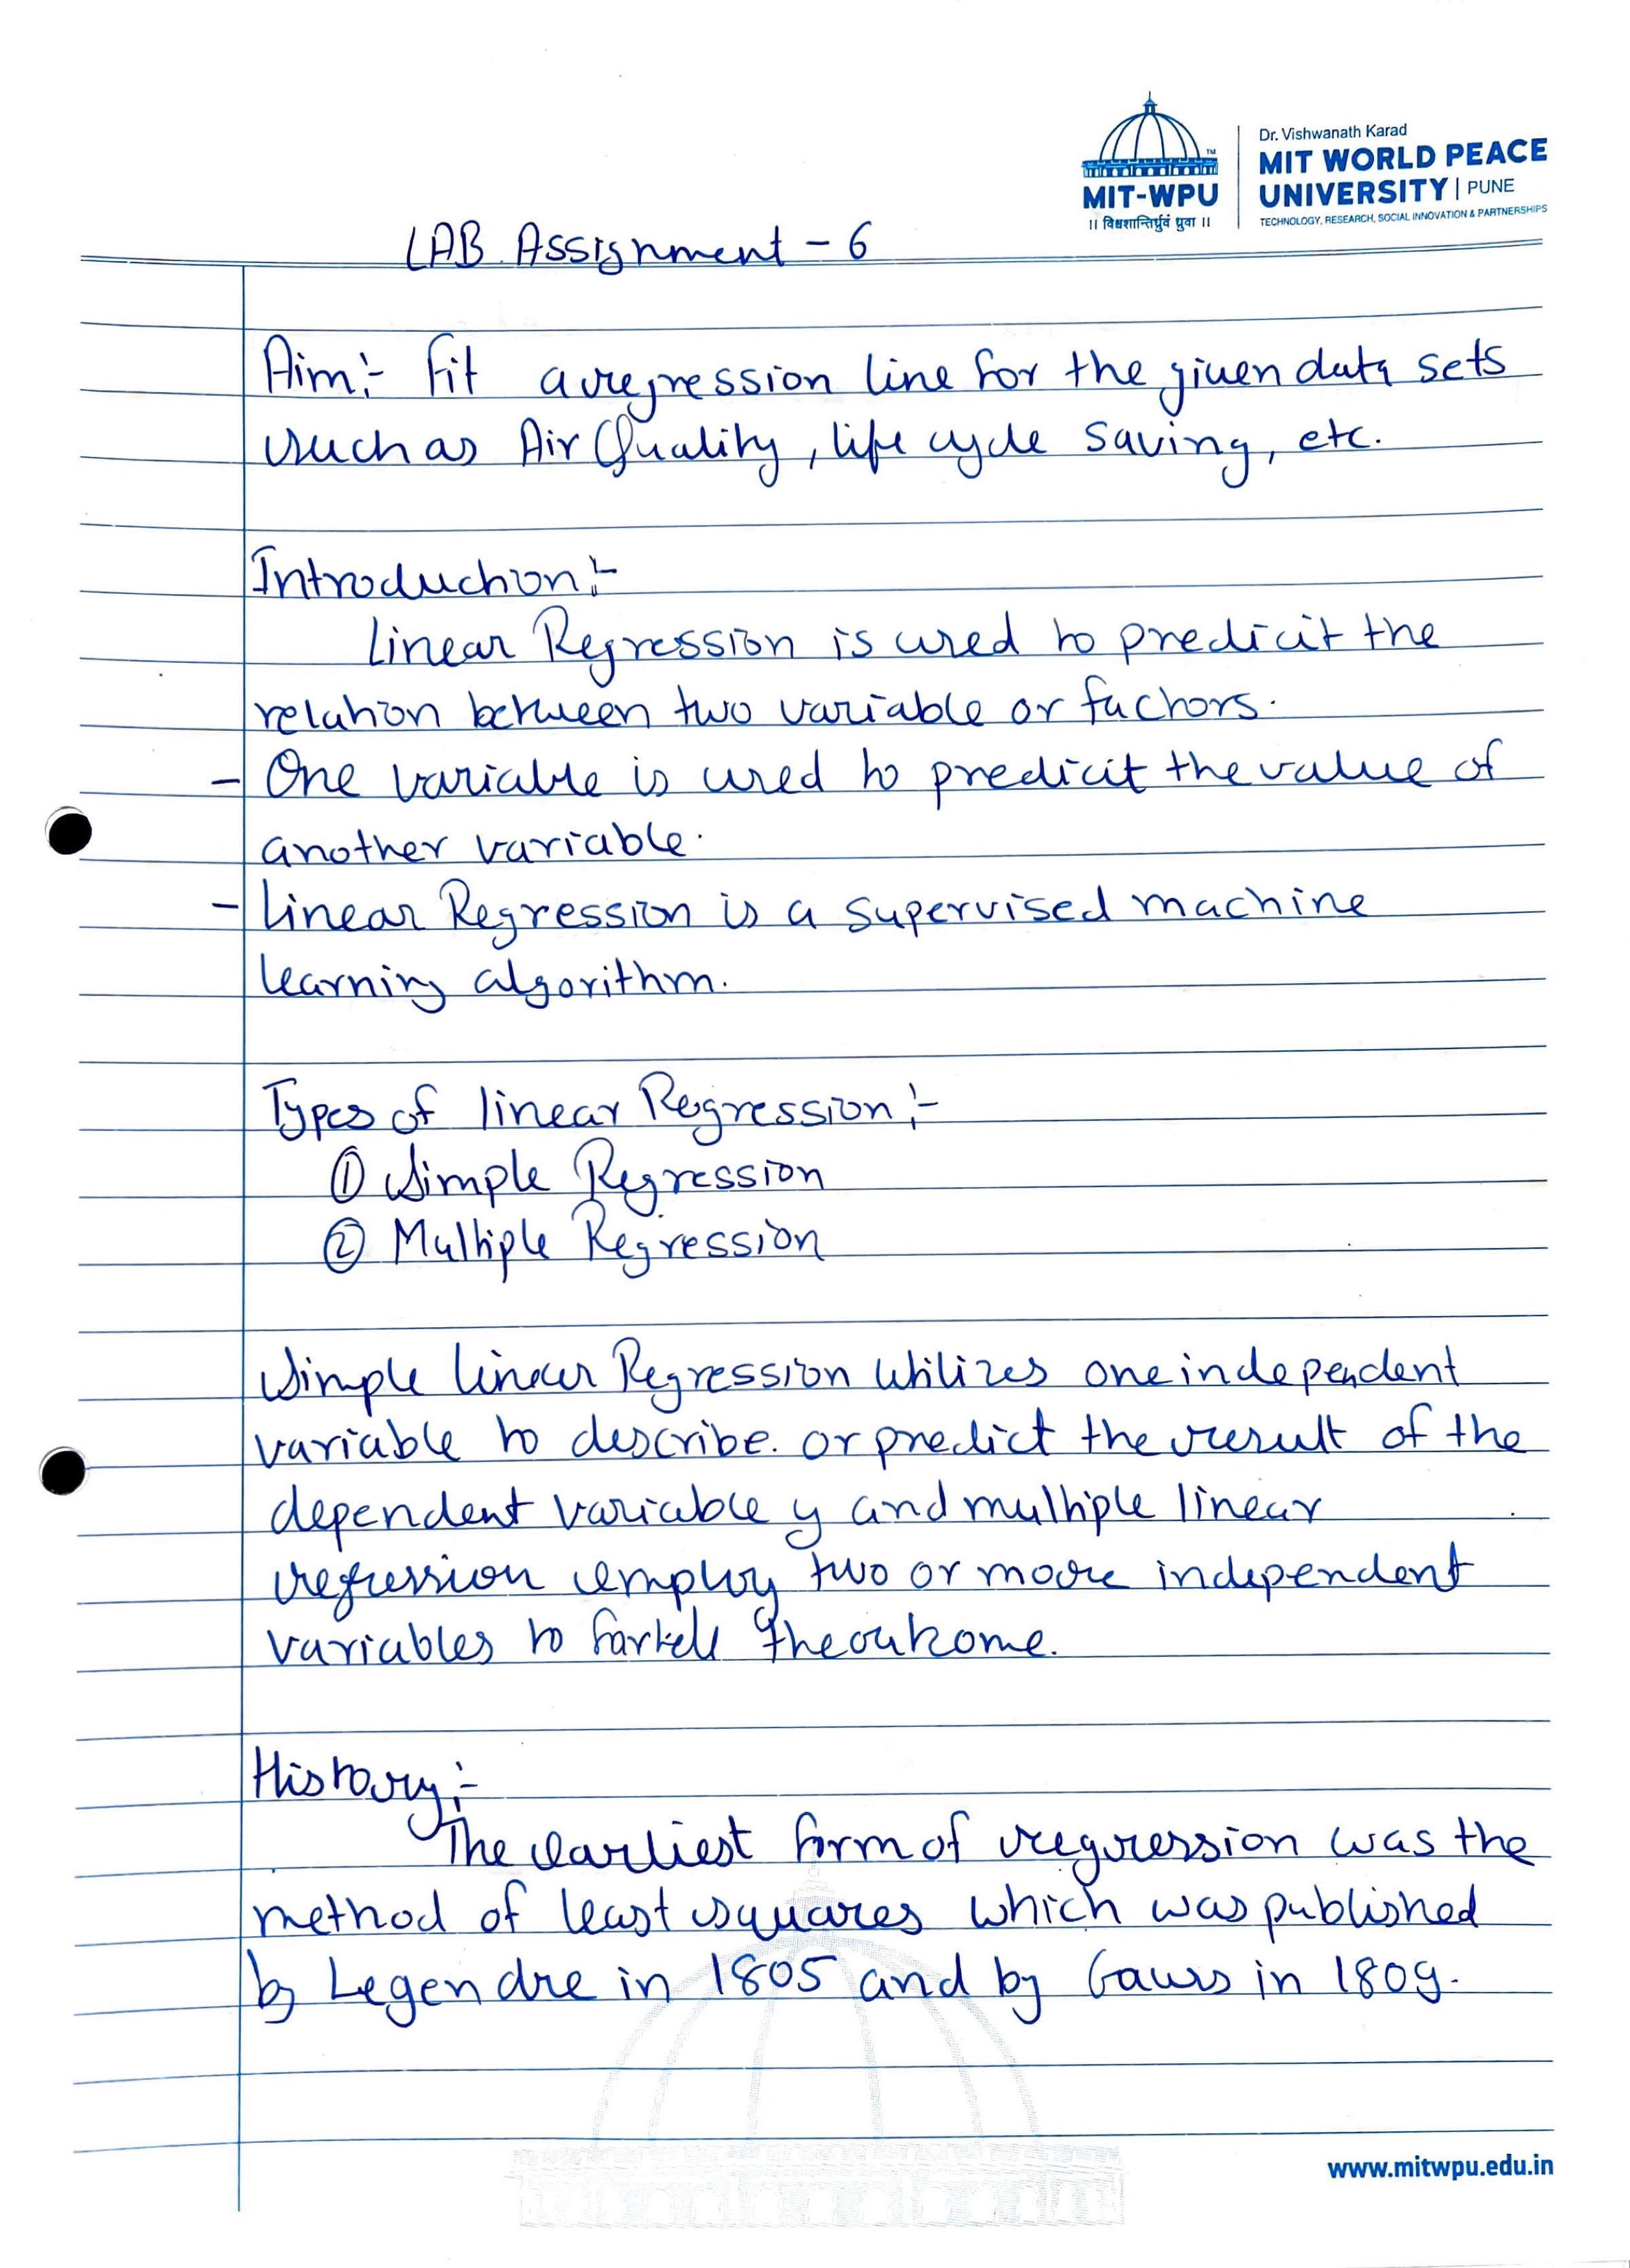 Dr. Vishwanath Karad
MIT WORLD PEACE
UNIVERSITY | PUNE
TECHNOLOGY, RESEARCH, SOCIAL INNOVATION & PARTNERSHIPS
MIT-WPU
TM
|| विश्वशान्तिर्ध्रुवं ध्रुवा ||
LAB Assignment - 6
Aim:- Fit a regression line for the given data sets
such as Air Quality, life cycle saving, etc.
Introduction:-
Linear Regression is used to predicit the
relation between two variable or factors.
- One variable is used to predicit the value of
another variable.
- Linear Regression is a supervised machine
learning algorithm.
Types of linear Regression:-
① Simple Regression
② Multiple Regression
Simple linear Regression utilizes one independent
variable to describe or predict the result of the
dependent variable y and multiple linear
regression employ two or more independent
variables to the outcome.
History:-
The earliest form of regression was the
method of least squares which was published
by Legendre in 1805 and by Gauss in 1809.
www.mitwpu.edu.in